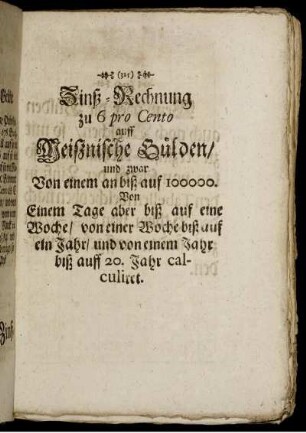 (315)
Zinß-Rechnung
zu 6 pro Cento
auff
Meißnische Gülden/
und zwar
Von einem an biß auf 100000.
Von
Einem Tage aber biß auf eine
Woche/ von einer Woche biß auf
ein Jahr/ und von einem Jahr
biß auff 20. Jahr cal-
culiret.